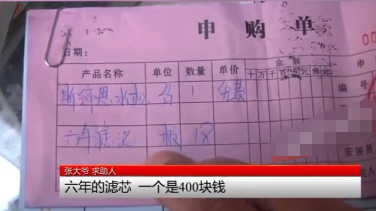 申购单
00
日期:
产品名称 单位 数量 单价 金额
十 万 千 百 十 元 角 分
台 1 免费
六年滤芯 18
编号
安装员
张大爷 求助人
六年的滤芯 一个是400块钱